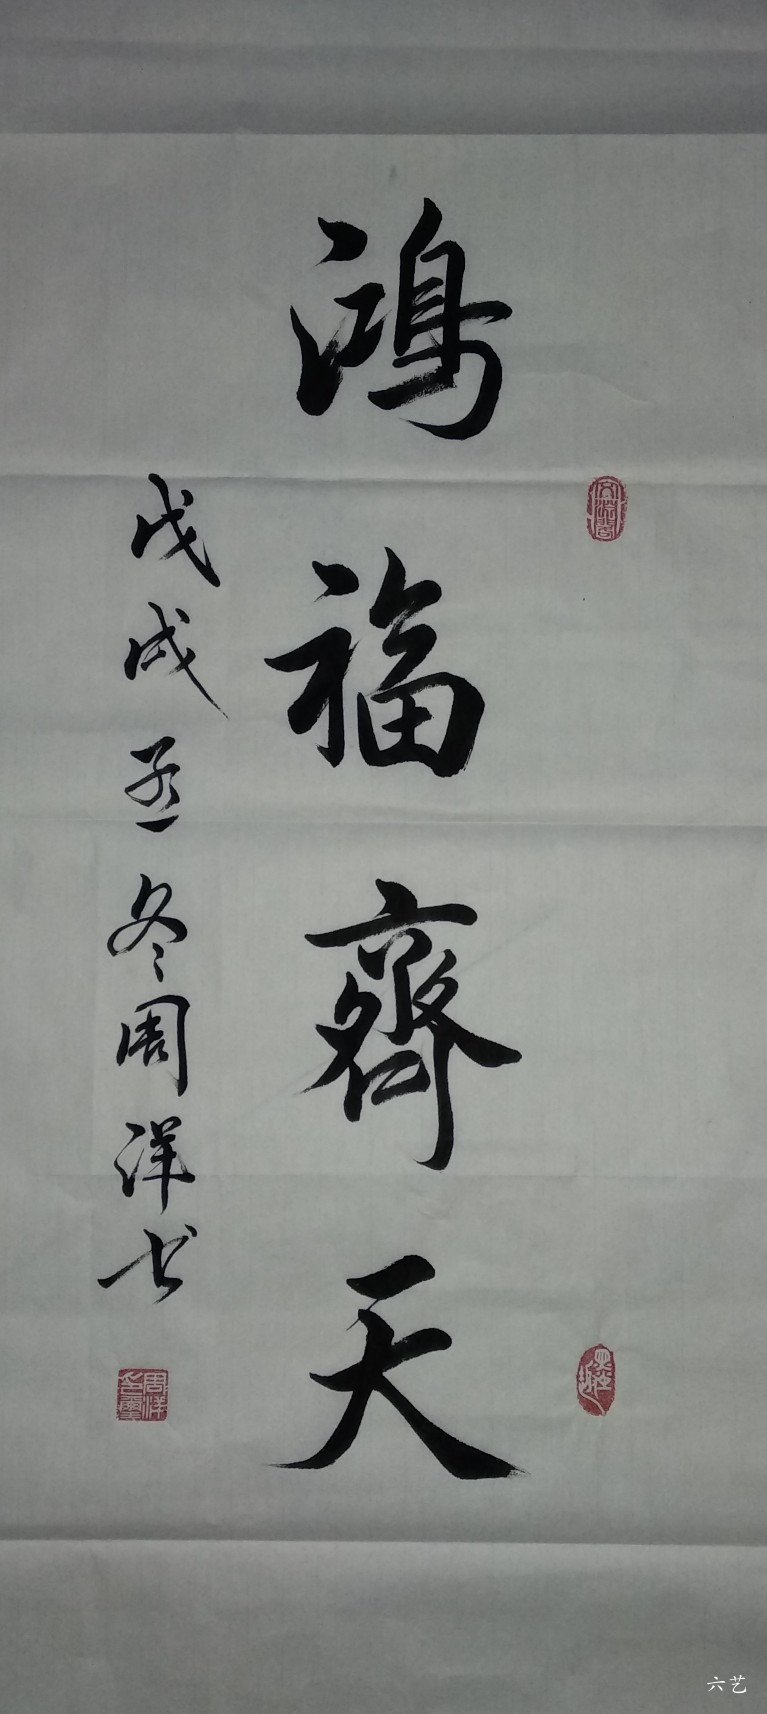 鴻福齊天
戊戌孟冬周洋书
周洋
六艺